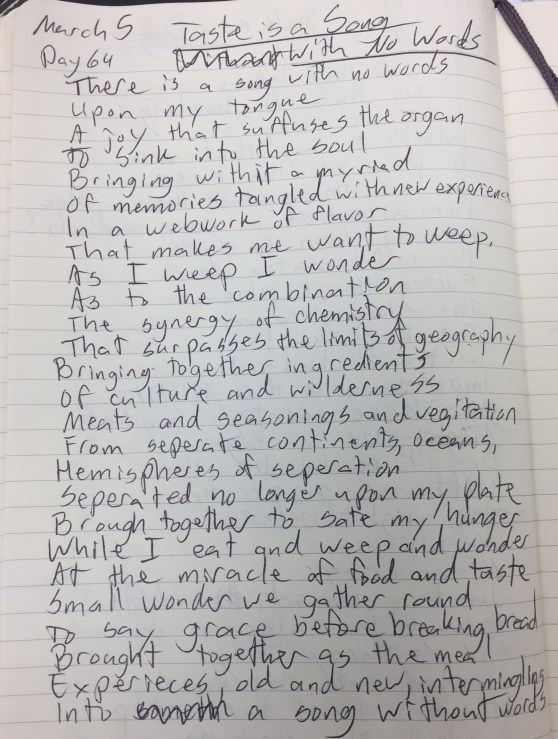 March 5 Taste is a Song
Day 64 Without With No Words
There is a song with no words
Upon my tongue
A joy that suffuses the organ
To sink into the soul
Bringing with it a myriad
Of memories tangled with new experience
In a webwork of flavor
That makes me want to weep.
As I weep I wonder
As to the combination
The synergy of chemistry
That surpasses the limits of geography
Bringing together ingredients
Of culture and wilderness
Meats and seasonings and vegitation
From seperate continents, oceans,
Hemispheres of seperation
Seperated no longer upon my plate
Brough together to sate my hunger
While I eat and weep and wonder
At the miracle of food and taste
Small wonder we gather round
To say grace before breaking bread
Brought together as the meal
Experieces, old and new, intermingling
Into a song without words